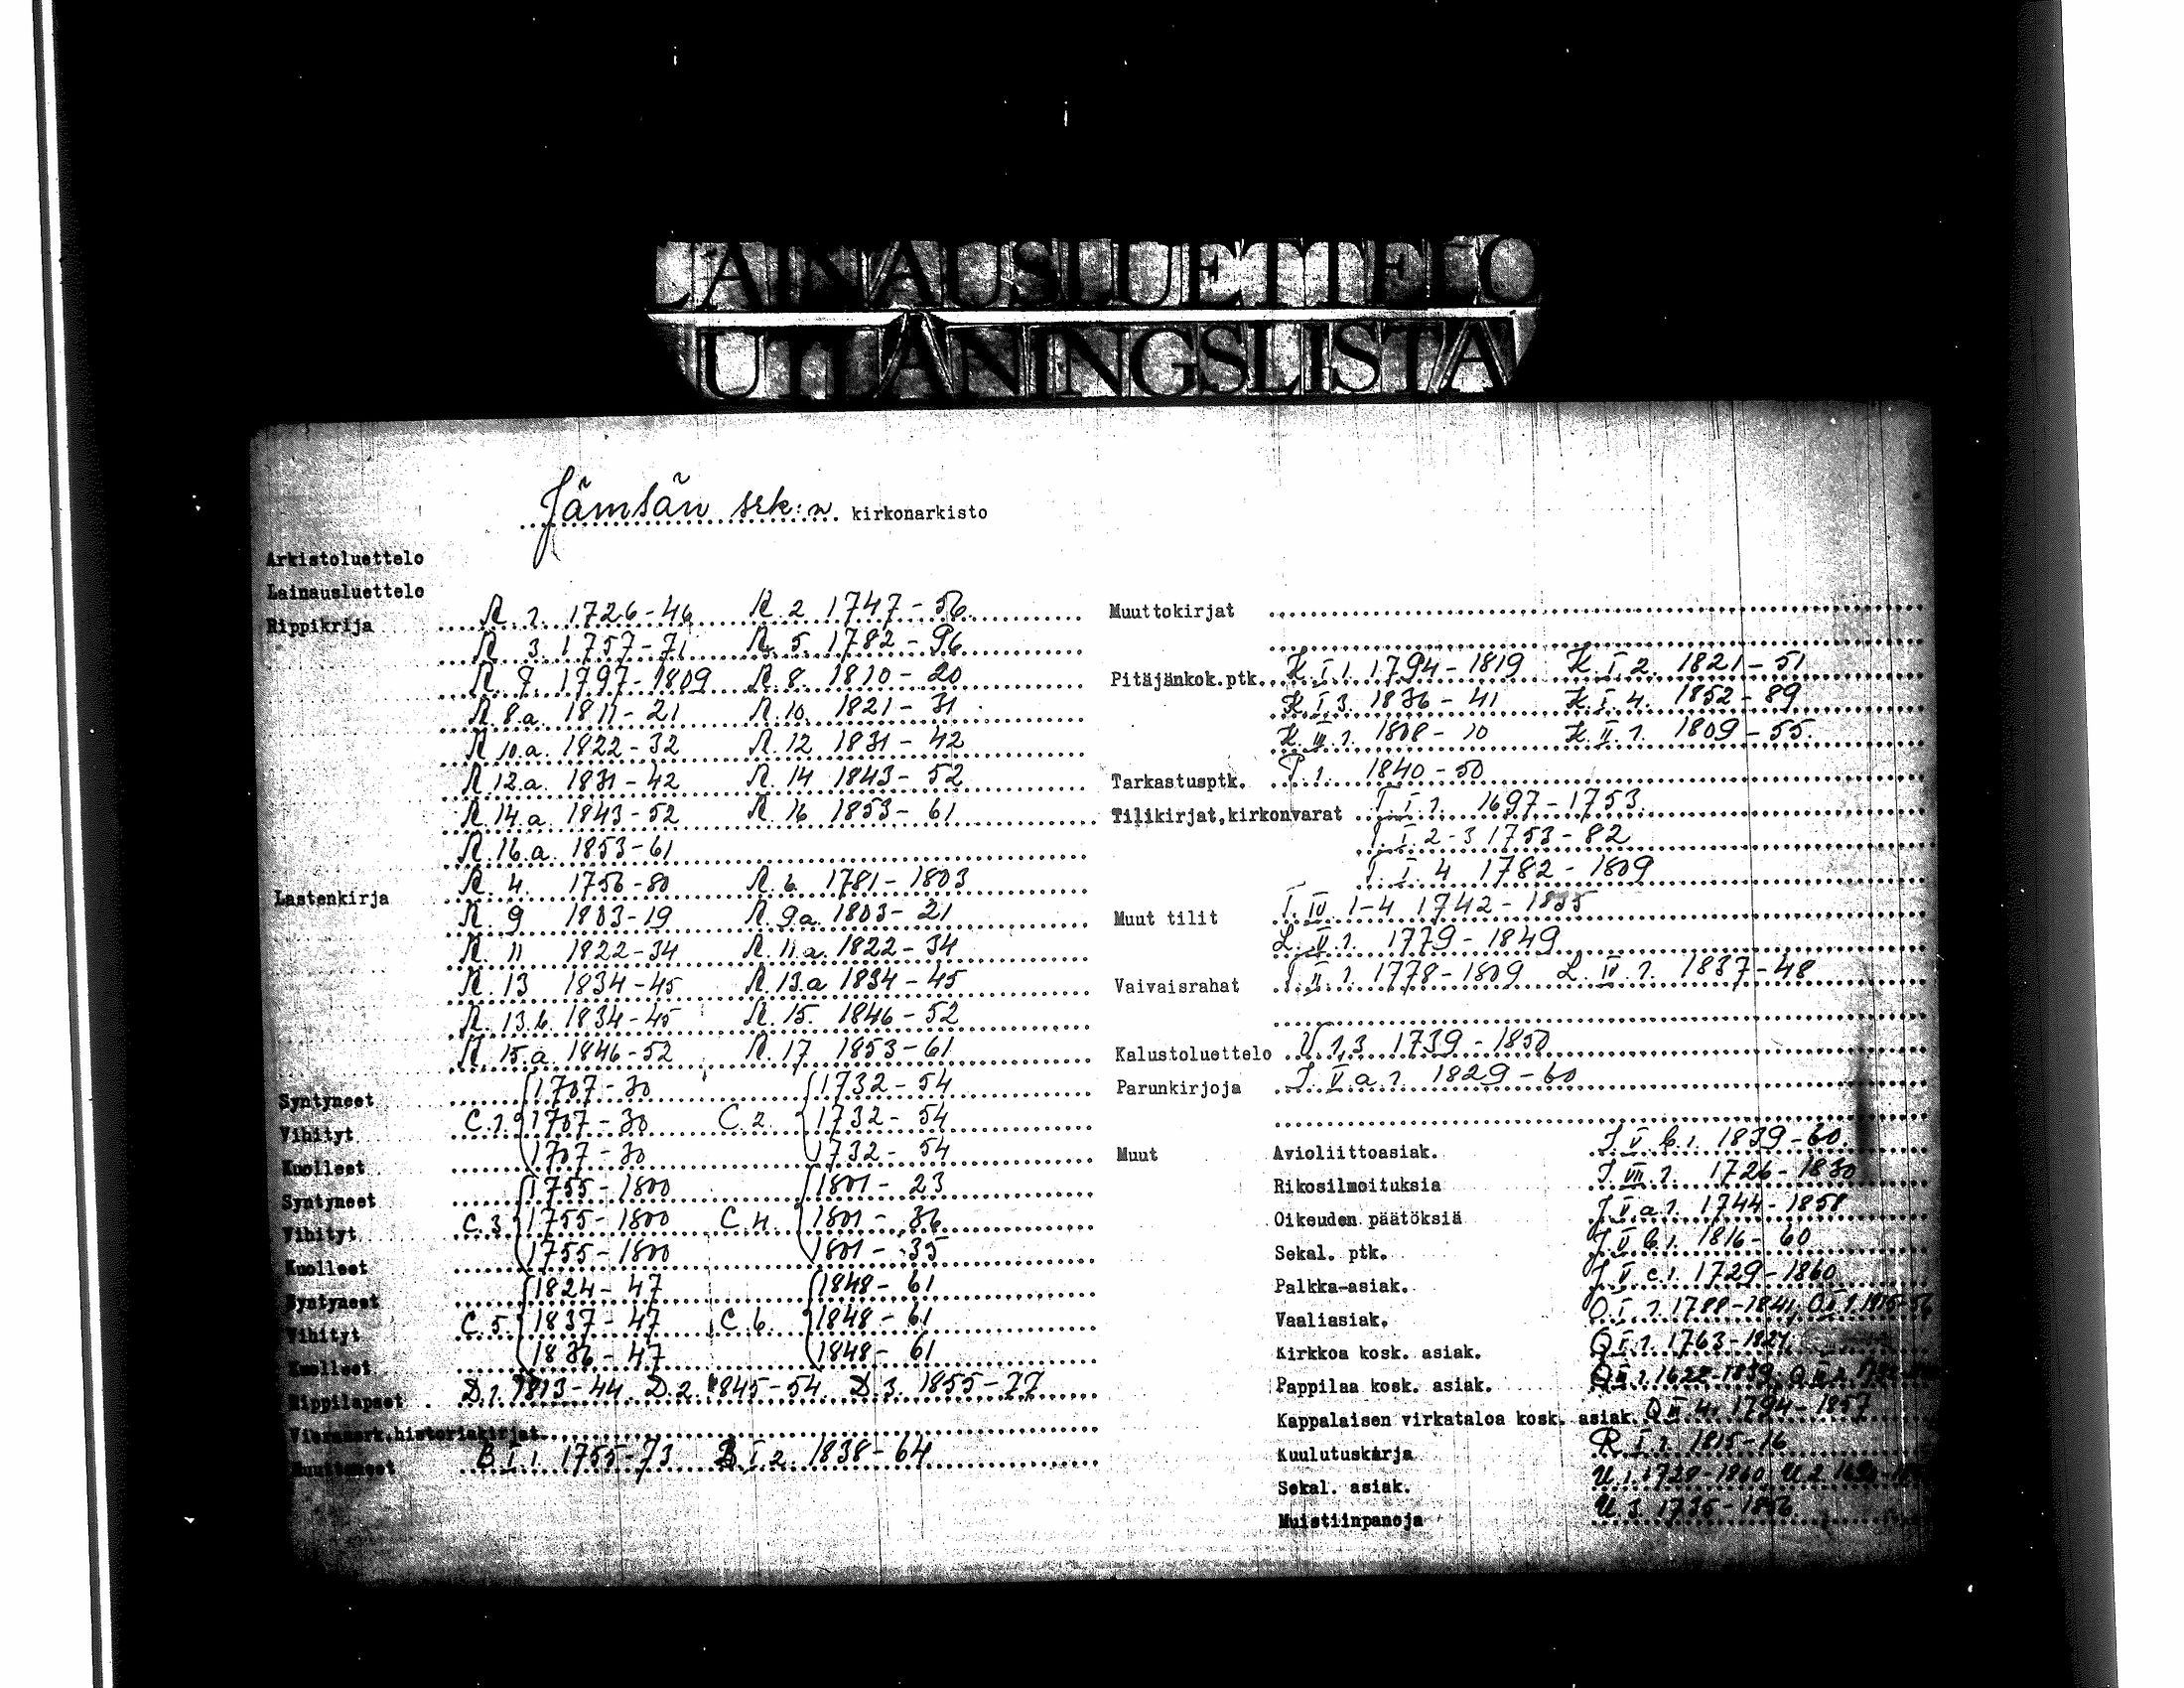 LAINAUSLUETTELO
UTLÅNINGSLISTA
Jämsän srk:n kirkonarkisto
Arkistoluettelo
Lainausluettelo
Rippikrija R. 1. 1726-46 R. 2 1747-56
R. 3. 1757-71 R. 5. 1782-96
R. 7. 1797-1809 R. 8. 1810-20
R. 8.a. 1811-21 R. 10. 1821-31
R. 10.a. 1822-32 R. 12 1831-42
R. 12.a. 1831-42 R. 14 1843-52
R. 14.a. 1843-52 R. 16 1853-61
R. 16.a. 1853-61
Lastenkirja R. 4. 1756-80 R. 6. 1781-1803
R. 9 1803-19 R. 9.a. 1803-21
R. 11 1822-34 R. 11.a. 1822-34
R. 13 1834-45 R. 13.a 1834-45
R. 13.b. 1834-45 R. 15. 1846-52
R. 15.a. 1846-52 R. 17 1853-61
Syntyneet 1707-30 1732-54
Vihityt C. 1. 1707-30 C. 2. 1732-54
Kuolleet 1707-30 1732-54
Syntyneet 1755-1800 1801-23
Vihityt C. 3. 1755-1800 C. 4. 1801-36
Kuolleet 1755-1800 1801-35
Syntyneet 1824-47 1848-61
Vihityt C. 5. 1837-47 C. 6. 1848-61
Kuolleet 1836-47 1848-61
Rippilapset D. 1. 1813-44 D. 2. 1845-54 D. 3. 1855-77
Vierasserk.historiakirjat
Muuttaneet B I. 1. 1755-73 B. I. 2. 1838-64
Muuttokirjat
Pitäjänkok.ptk. K. I 1. 1794-1819 K. I 2. 1821-51
K. I 3. 1836-41 K. I. 4. 1852-89
K. III. 1. 1808-10 K. II. 1. 1809-55.
Tarkastusptk. P. 1. 1840-50
Tilikirjat,kirkonvarat T. I. 1. 1697-1753.
T. I. 2-3 1753-82
T. I. 4 1782-1809
Muut tilit T. IV 1-4 1742-1835
L. V. 1. 1779-1849
Vaivaisrahat T. II. 1. 1778-1809 L. IV. 1. 1837-48
Kalustoluettelo U 1,3 1739-1850
Parunkirjoja J. V. a. 1. 1829-60
Muut Avioliittoasiak. J. V. b. 1. 1839-60.
Rikosilmoituksia J. VII. 1. 1726-1830
Oikeuden päätöksiä J V a. 1. 1744-1858
Sekal. ptk. J V b. 1. 1816-60
Palkka-asiak. J V. c. 1. 1729-1860
Vaaliasiak. O. I. 1. 1788-1841,
Kirkkoa kosk. asiak. Q I. 1. 1763-1827
Pappilaa kosk. asiak.
Kappalaisen virkataloa kosk. asiak. Q III 4. 1794-1857
Kuulutuskirja R. I. 1. 1815-16
Sekal. asiak. U. 1. 1728-1860
Muistiinpanoja U 3. 1735-1856